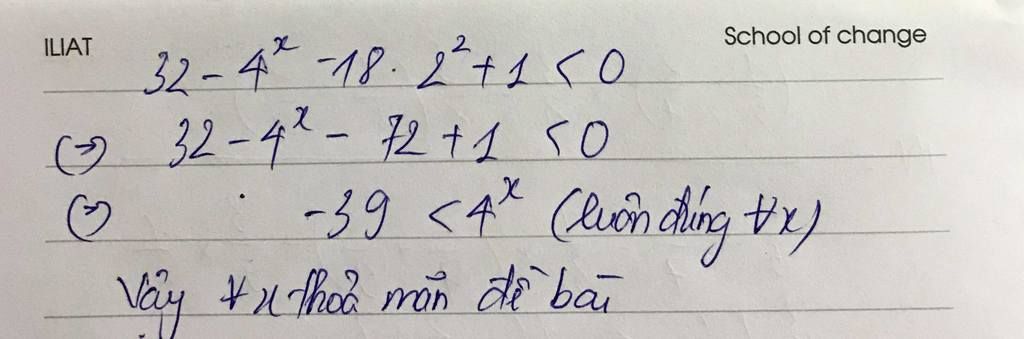 ILIAT School of change
32 - 4^x - 18. 2^2 + 1 < 0
(=>) 32 - 4^x - 72 + 1 < 0
(=>) -39 < 4^x (luôn đúng ∀x)
Vậy ∀x thoả mãn đề bài